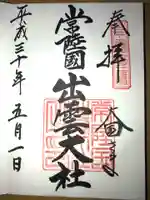 奉拝
常陸國出雲大社
平成三十年五月一日